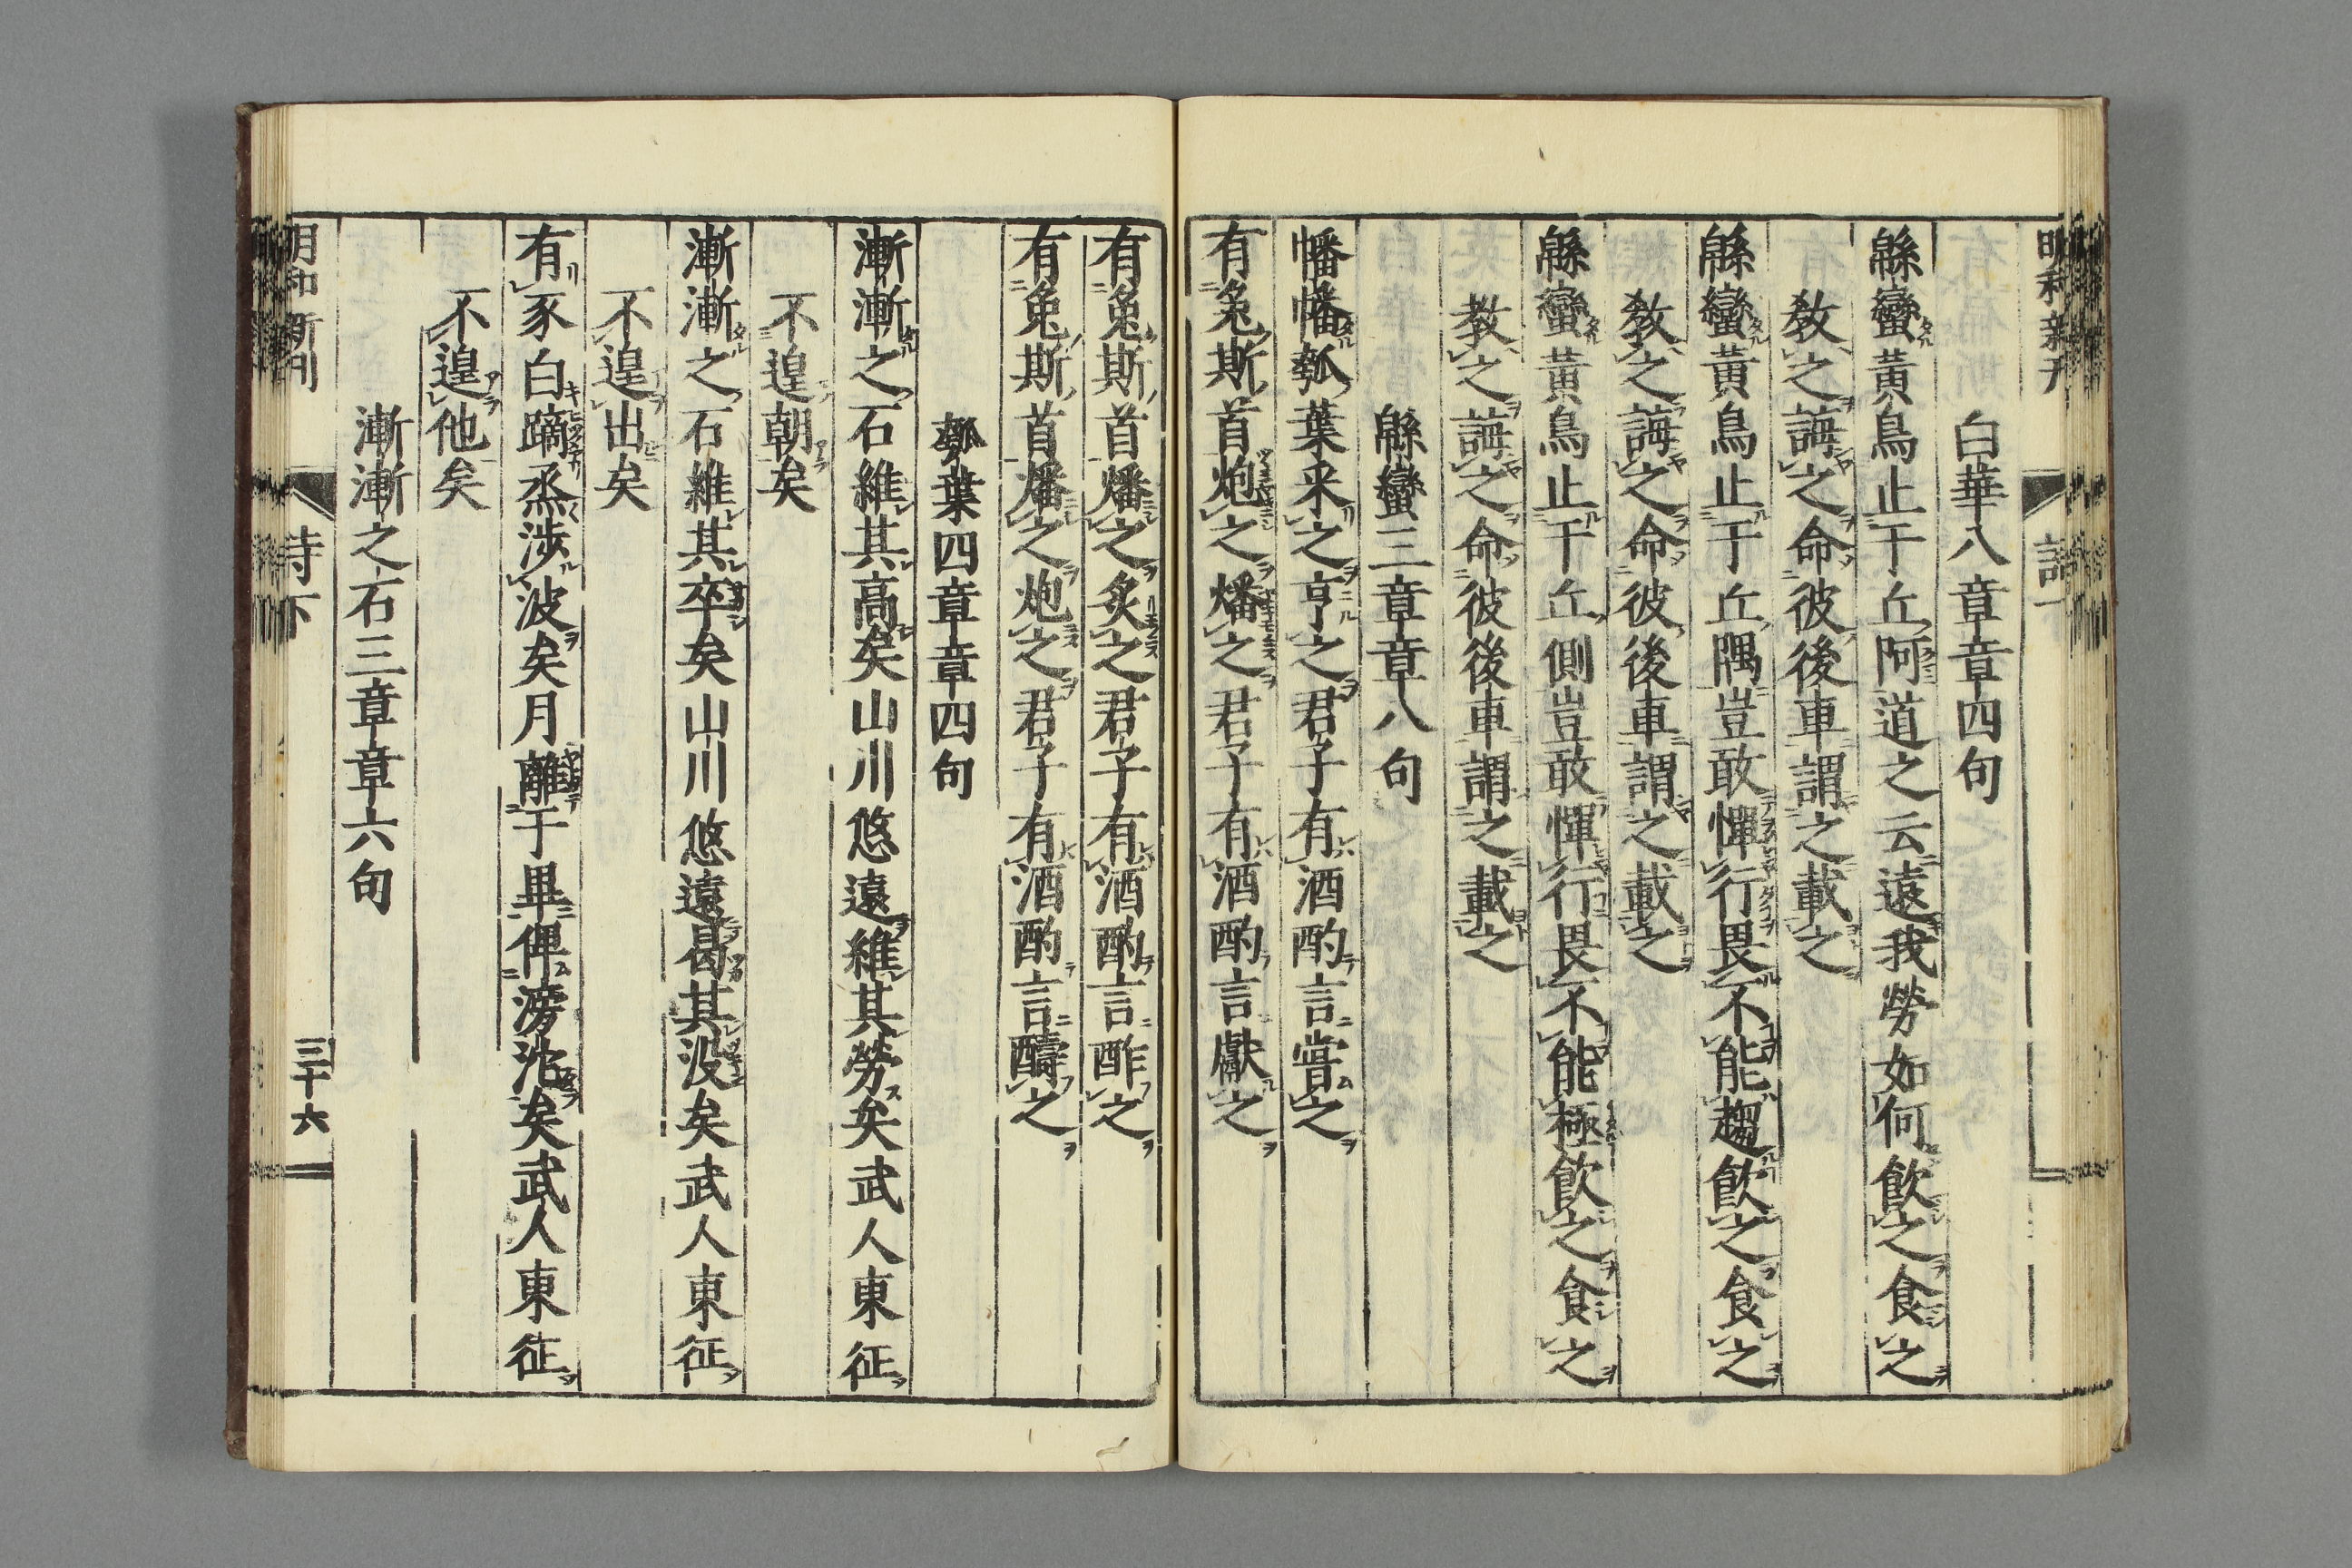 白華八章章四句
緜蠻黃鳥止于丘阿道之云遠我勞如何飲之食之
教之誨之命彼後車謂之載之
緜蠻黃鳥止于丘隅豈敢憚行畏不能趨飲之食之
教之誨之命彼後車謂之載之
緜蠻黃鳥止于丘側豈敢憚行畏不能極飲之食之
教之誨之命彼後車謂之載之
緜蠻三章章八句
幡幡瓠葉采之亨之君子有酒酌言嘗之
有兔斯首炮之燔之君子有酒酌言獻之
有兔斯首燔之炙之君子有酒酌言酢之
有兔斯首燔之炮之君子有酒酌言醻之
瓠葉四章章四句
漸漸之石維其高矣山川悠遠維其勞矣武人東征
不遑朝矣
漸漸之石維其卒矣山川悠遠曷其沒矣武人東征
不遑出矣
有豕白蹢烝涉波矣月離于畢俾滂沱矣武人東征
不遑他矣
漸漸之石三章章六句
明和新刊
詩下
三十六